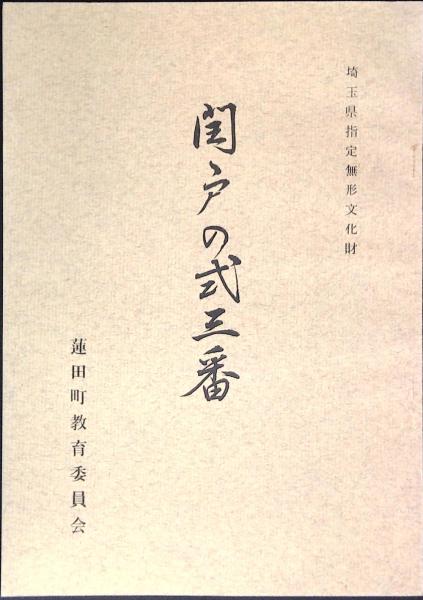 埼玉県指定無形文化財
閏戸の式三番
蓮田町教育委員会